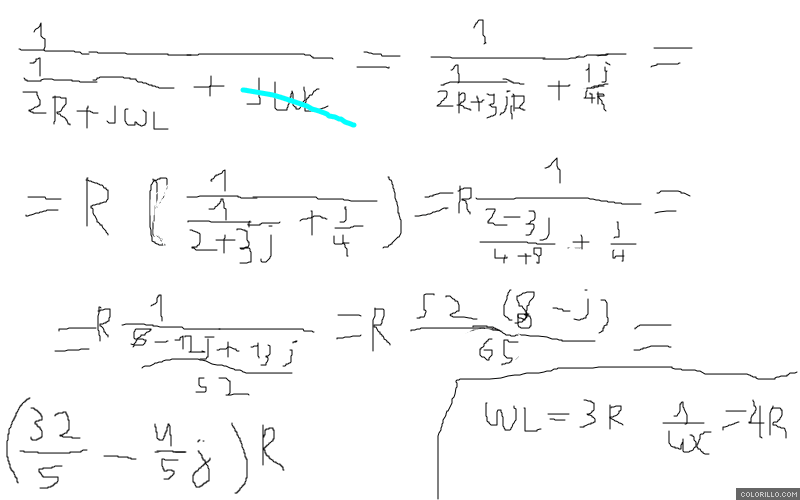 1/(1/(2R+jWL) + jWC) = 1/(1/(2R+3jR) + 1j/4R) =
= R (1/(1/(2+3j) + j/4)) = R 1/((2-3j)/(4+9) + j/4) =
= R 1/((8-12j+13j)/52) = R 52(8-j)/65 =
WL = 3R 1/WC = 4R
(32/5 - 4/5 j) R
COLORILLO.COM